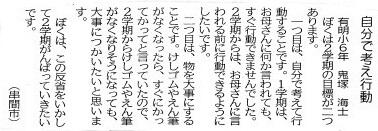 自分で考え行動
有明小6年　鬼塚　海士
ぼくは2学期の目標が二つ
あります。
一つ目は、自分で考えて行
動することです。1学期は、
お母さんに何か言われても、
すぐ行動できませんでした。
2学期からは、お母さんに言
われる前に行動できるように
したいです。
二つ目は、物を大事にする
ことです。けしゴムやえん筆
がなくなったら、すぐにかっ
てかってと言っていたので、
2学期からけしゴムやえん筆
がなくなりそうになっても、
大事につかいたいと思いま
す。
ぼくは、この反省をいかし
て2学期がんばっていきたい
です。
（串間市）